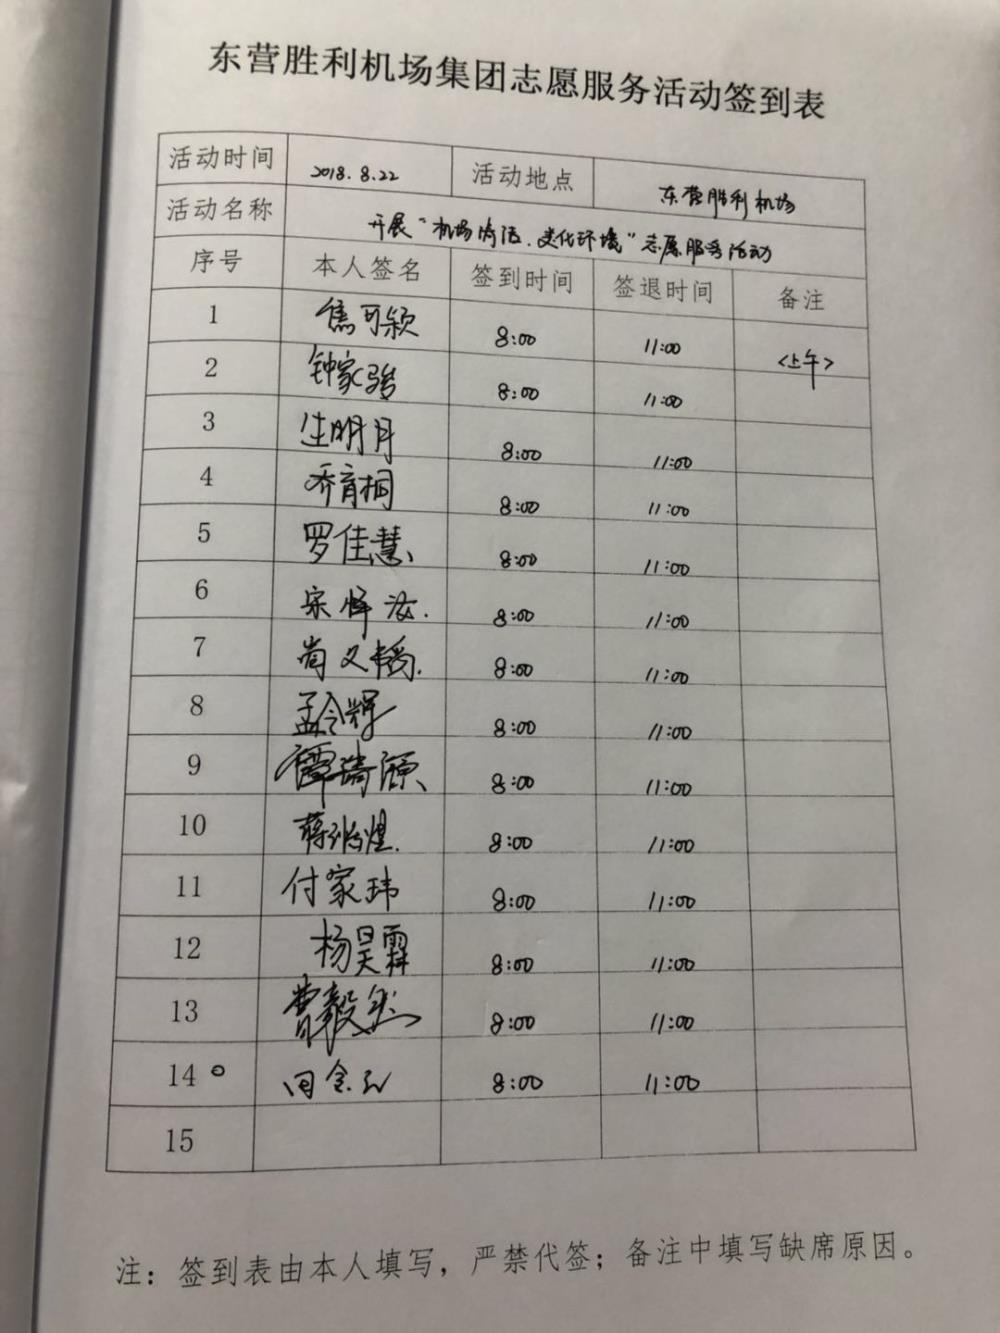 东营胜利机场集团志愿服务活动签到表
活动时间 2018.8.22 活动地点 东营胜利机场
活动名称 开展“机场清洁、美化环境”志愿服务活动
序号 本人签名 签到时间 签退时间 备注
1 焦可颖 8:00 11:00 <上午>
2 钟家骏 8:00 11:00
3 生明月 8:00 11:00
4 乔育桐 8:00 11:00
5 罗佳慧 8:00 11:00
6 宋 8:00 11:00
7 尚又 8:00 11:00
8 孟令辉 8:00 11:00
9 谭琦源 8:00 11:00
10 蒋 煌 8:00 11:00
11 付家玮 8:00 11:00
12 杨昊霖 8:00 11:00
13 曹毅然 8:00 11:00
14 8:00 11:00
15
注：签到表由本人填写，严禁代签；备注中填写缺席原因。